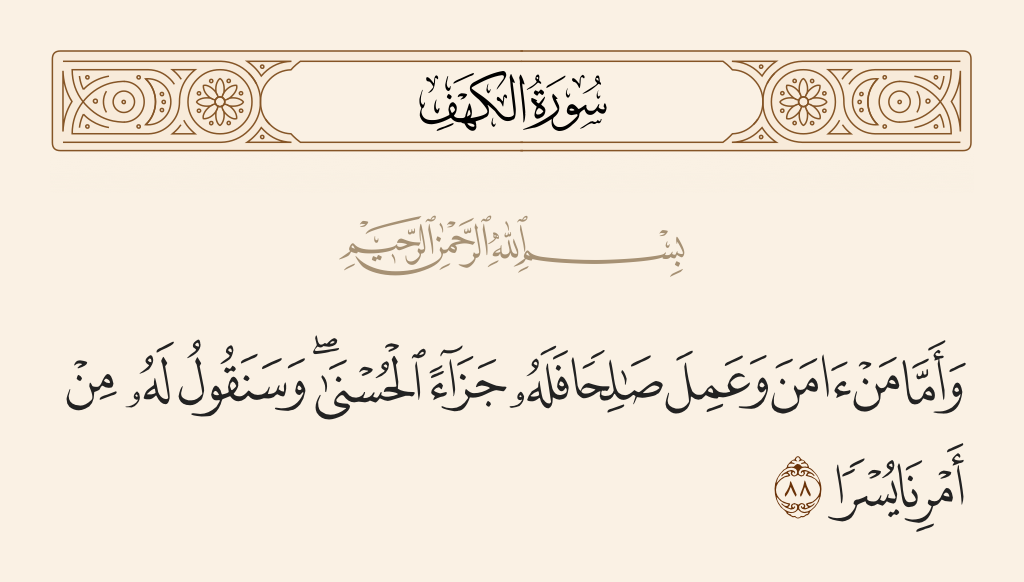 سُورَةُ الكَهْفِ
بِسْمِ ٱللَّهِ ٱلرَّحْمَٰنِ ٱلرَّحِيمِ
وَأَمَّا مَنْ ءَامَنَ وَعَمِلَ صَٰلِحًا فَلَهُۥ جَزَآءً ٱلْحُسْنَىٰ ۖ وَسَنَقُولُ لَهُۥ مِنْ
أَمْرِنَا يُسْرًا ٨٨